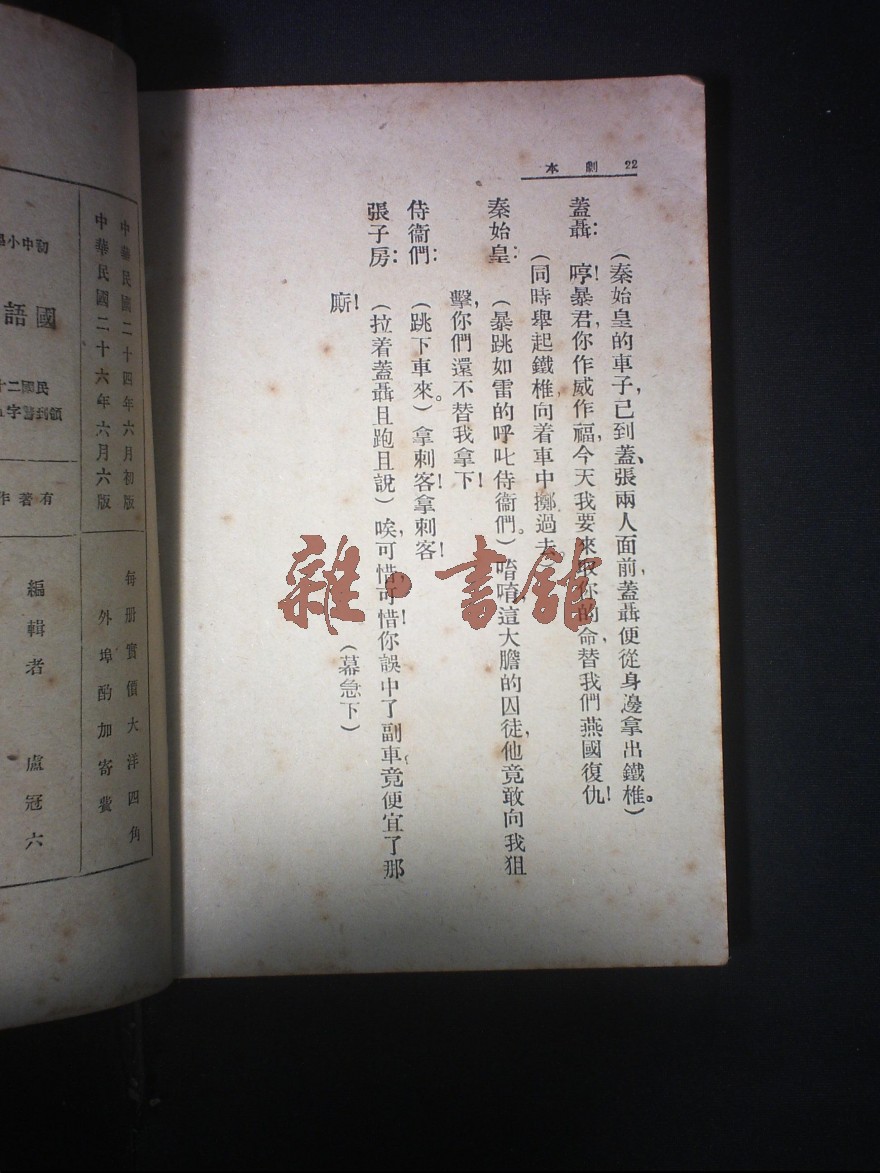 劇本 22
(秦始皇的車子,已到蓋、張兩人面前,蓋聶便從身邊拿出鐵椎。)
蓋聶: 哼!暴君,你作威作福,今天我要來取你的命,替我們燕國復仇!
(同時舉起鐵椎向着車中擲過去。
秦始皇: (暴跳如雷的呼叱侍衞們。)唷唷,這大膽的囚徒,他竟敢向我狙
擊,你們還不替我拿下!
侍衞們: (跳下車來。)拿刺客!拿刺客!
張子房: (拉着蓋聶且跑且說)唉,可惜,可惜!你誤中了副車,竟便宜了那
廝!
(幕急下)
雜·書館
中華民國二十四年六月初版
中華民國二十六年六月六版
每册實價大洋四角
外埠酌加寄費
初中小學
國語
民國二十
領到審字
有著作
編輯者 盧冠六